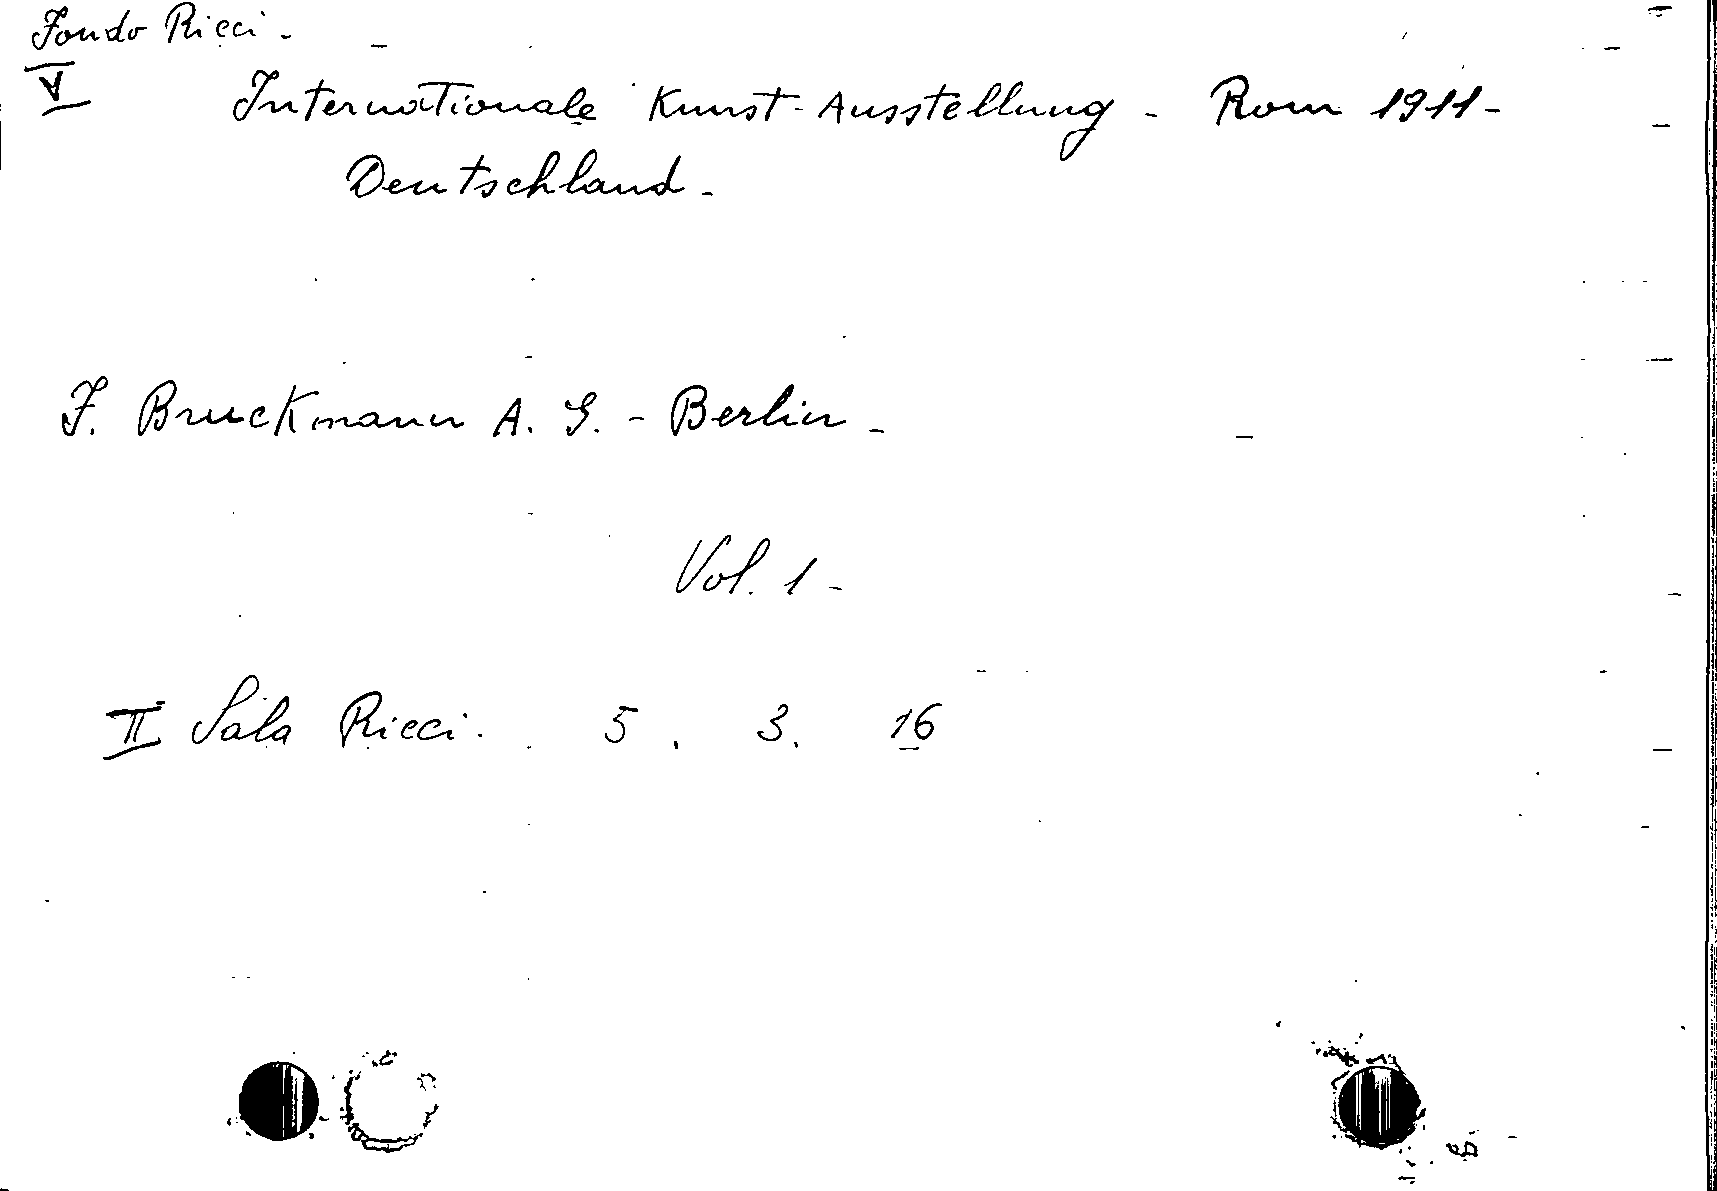 Fondo Ricci -
V
Internationale Kunst-Ausstellung - Rom 1911-
Deutschland -
F. Bruckmann A. G. - Berlin -
Vol. 1 -
II Sala Ricci. 5. 3. 16